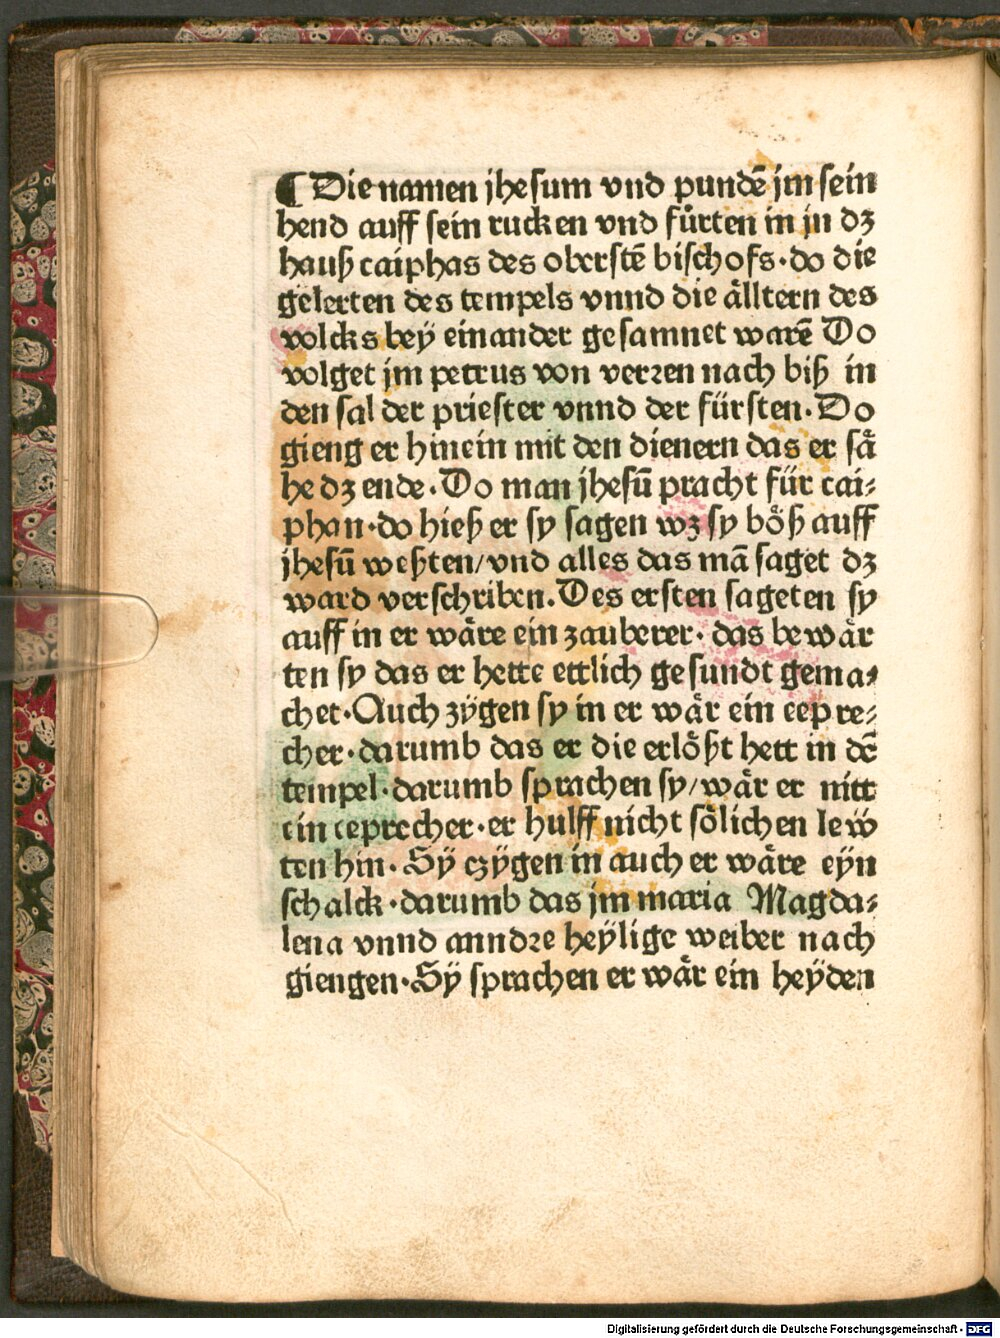 ¶ Die namen jhesum vnd pundē jm sein
hend auff sein rucken vnd fürten in jn dꝫ
hauß caiphas des oberstē bischofs·do die
gelerten des tempels vnnd die ålltern des
volcks beÿ einander gesamnet warē Do
volget jm petrus von verꝛen nach biß in
den sal der priester vnnd der fürsten·Do
gieng er hinein mit den dienern das er så
he dꝫ ende·Do man jhesū pracht für cai⸗
phan·do hieß er sy sagen wꝫ sy böß auff
jhesū weßten/vnd alles das mā saget dꝫ
ward verschriben.Des ersten sageten sy
auff in er wåre ein zauberer·das bewår
ten sy das er hette ettlich gesundt gema⸗
chet·Auch zÿgen sy in er wår ein eepre⸗
cher·darumb das er die erlößt hett in dē
tempel·darumb sprachen sy/wår er nitt
ein eeprecher·er hulff nicht sölichen lew̎
ten hin·Sÿ czÿgen in auch er wåre eÿn
schalck·darumb das jm maria Magda⸗
lena vnnd anndꝛe heÿlige weiber nach
giengen·Sÿ sprachen er wår ein heÿden
Digitalisierung gefördert durch die Deutsche Forschungsgemeinschaft - DFG